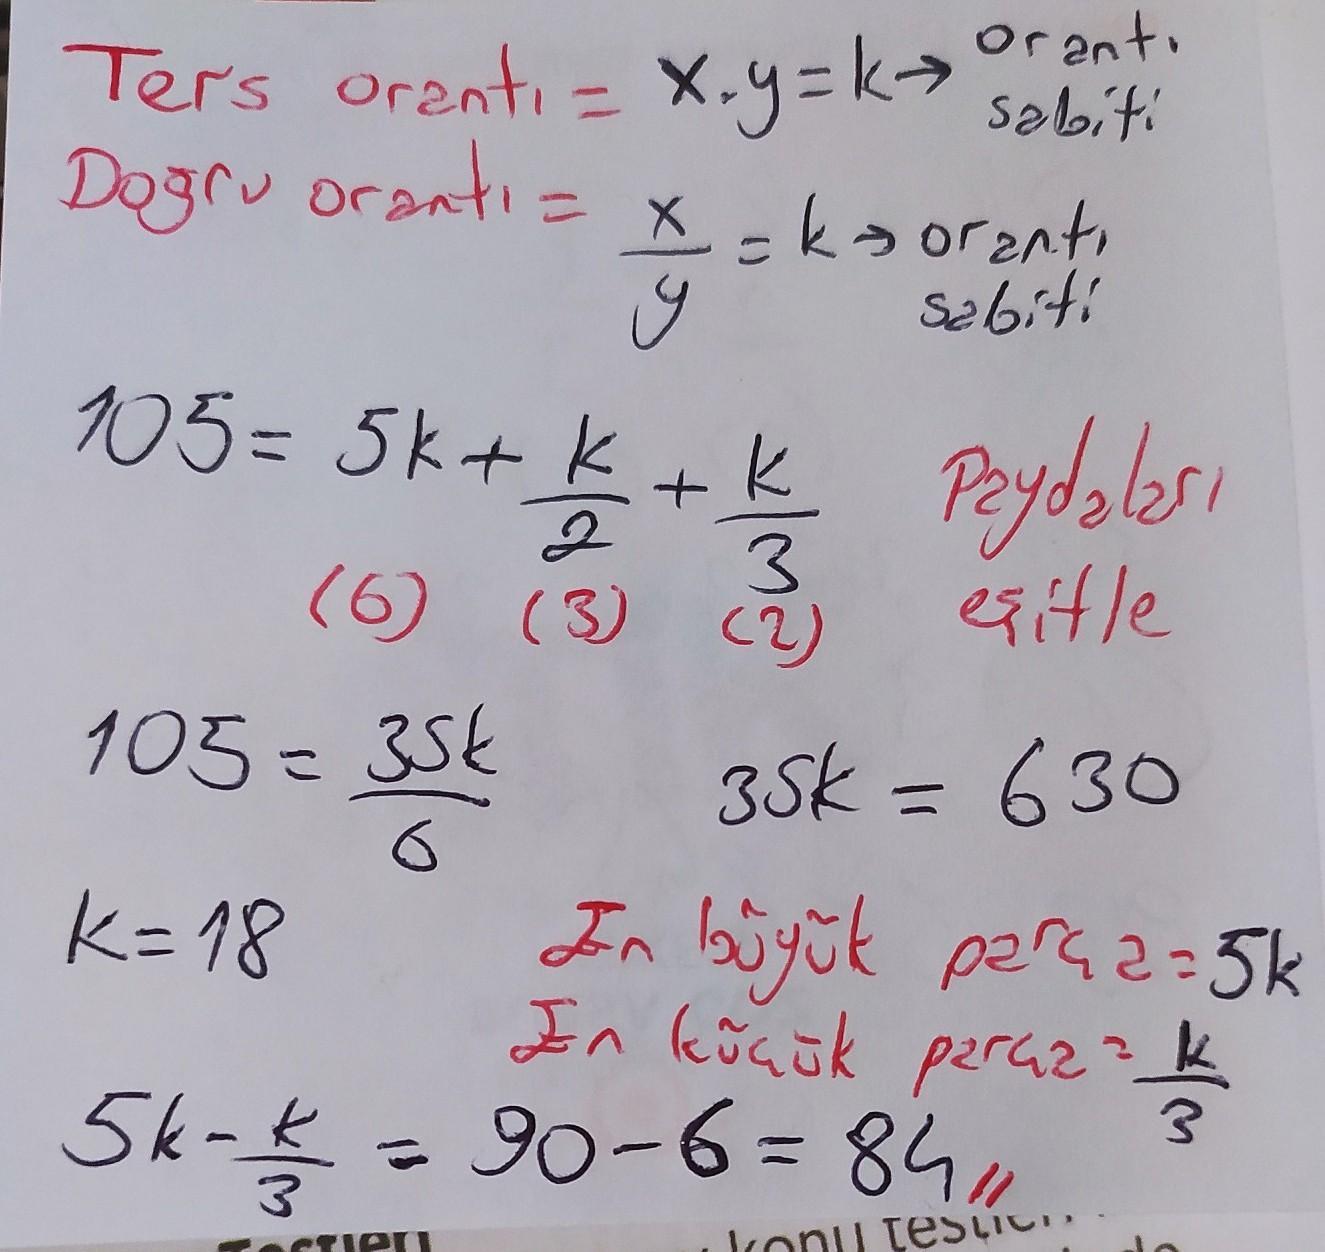 Ters orantı = x.y = k → orantı sabiti
Doğru orantı = x/y = k → orantı sabiti
105 = 5k + k/2 + k/3 Paydaları eşitle
(6) (3) (2)
105 = 35k/6 35k = 630
k = 18 En büyük parça = 5k
En küçük parça = k/3
5k - k/3 = 90 - 6 = 84 //
konu testleri